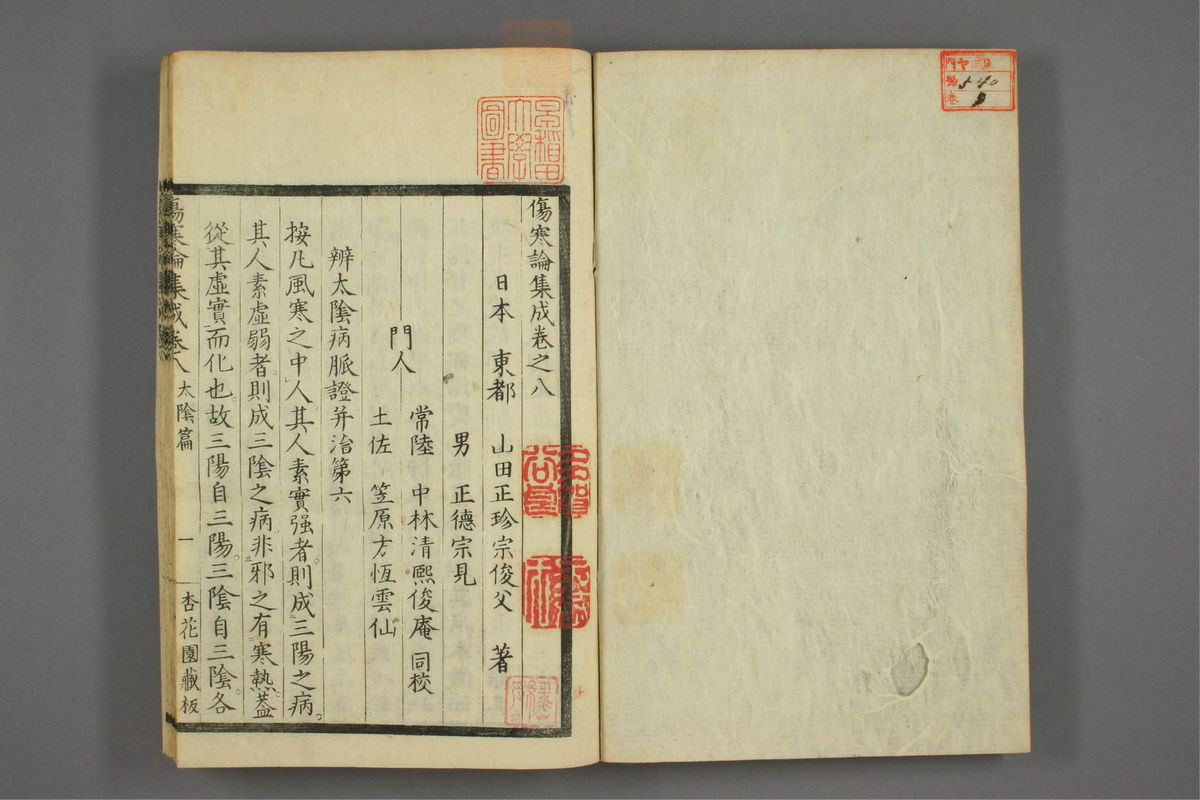 傷寒論集成卷之八
日本 東都 山田正珍宗俊父 著
男 正德宗見
門人
常陸 中林清熙俊庵 同校
土佐 笠原方恆雲仙
辨太陰病脈證并治第六
按凡風寒之中人其人素實强者則成三陽之病。
其人素虛弱者則成三陰之病非邪之有寒熱蓋
從其虛實而化也故三陽自三陽三陰自三陰各
傷寒論集成卷八 太陰篇 一 杏花園藏板
早稻田
大學
圖書
門
號 540
卷 9